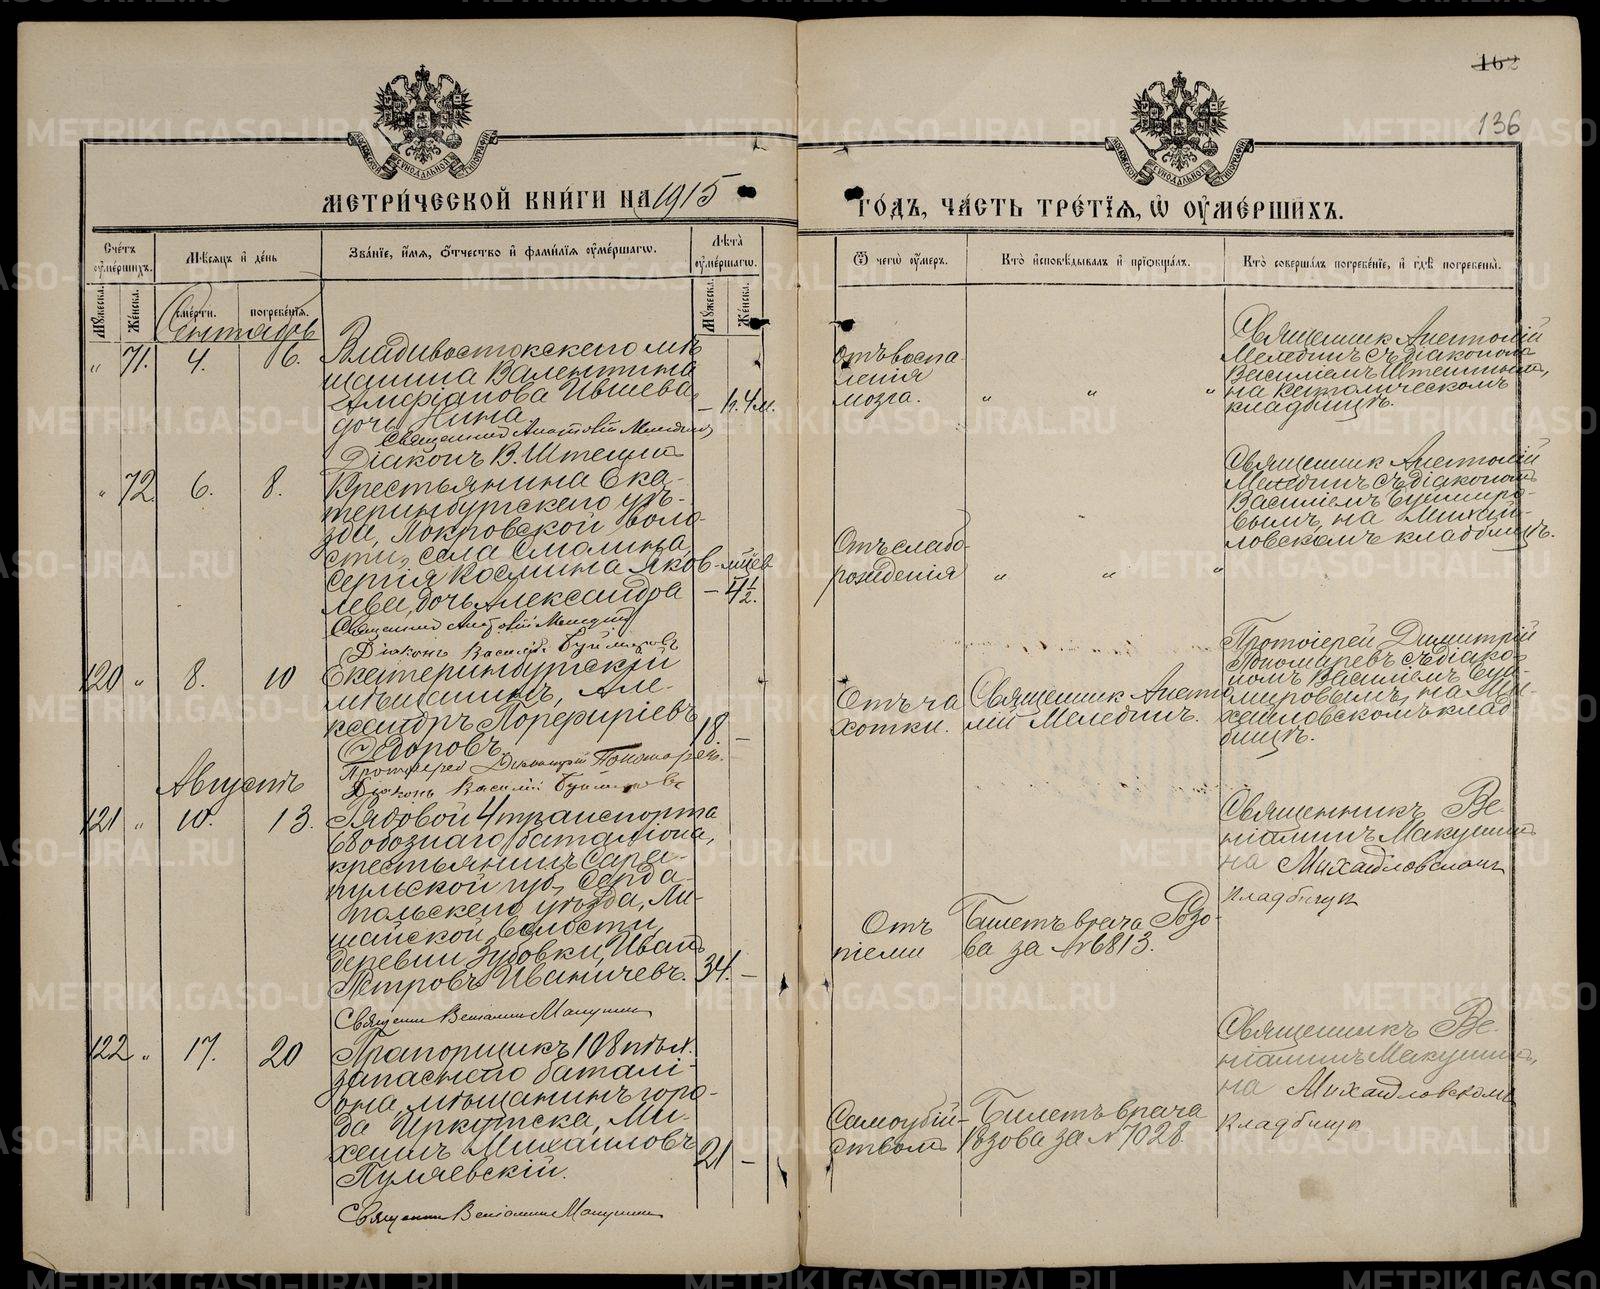 162
136
МЕТРИ́ЧЕСКОЙ КНИ́ГИ НА 1915
ГО́ДЪ, ЧА́СТЬ ТРЕ́ТІѦ, Ѡ҆ ОУ҆МЕ́РШИХЪ.
Счетъ оумершихъ.
Мѣсяцъ и день
Званіе, имя, отчество и фамилія оумершагѡ.
Лѣта оумершагѡ.
Ѿ чегѡ оумеръ.
Кто исповѣдывалъ и пріобщалъ.
Кто совершалъ погребеніе, и гдѣ погребены.
Мужеска.
Женска.
смерти.
погребенія.
Мужеска.
Женска.
Сентябрь
„ 71. 4. 6.
Владивостокскаго мѣ
щанина Валентина
Ившева
дочь Нина.
– 1г. 4 м.
Священник Анатолій Меледин
Діаконъ В. Штешинъ
Отъ воспа-
ленія
мозга. „ „ „
Священник Анатолій
Мелединъ съ діакономъ
Василіемъ
на Католическомъ
кладбищѣ.
„ 72. 6. 8.
Крестьянина Ека-
теринбургскаго уѣ-
зда, Покровской воло-
сти, села Смолина,
Сергія Космина Яков-
лева, дочь Александра
– мѣсяцев 4½.
Священник Анатолій Меледин
Діаконъ Василій
Отъ слабо-
рожденія „ „ „
Священник Анатолій
Мелединъ съ діакономъ
Василіемъ
вымъ, на Михай-
ловскомъ кладбищѣ.
120 „ 8. 10
Екатеринбургскій
мѣщанинъ, Але-
ксандръ Порфиріевъ
Федоровъ
18. –
Протоіерей Димитрій Пономарев.
Діаконъ Василій
Отъ ча
хотки.
Священник Анато
лій Мелединъ.
Протоіерей Димитрій
Пономаревъ съ діако-
номъ Василіемъ
мировымъ, на Ми-
хайловскомъ клад
бищѣ.
Августъ
121 „ 10. 13.
Рядовой 4 транспорта
68 обознаго баталіона,
крестьянинъ Сара-
пульской губ,
польскаго уѣзда,
волости,
деревни Зубовки, Иванъ
Петровъ Иваничевъ.
34. –
Священник Веніамин Макушин
Отъ
піеми
Билетъ врача Розо-
ва за № 6813.
Священникъ Ве
ніаминъ Макушинъ
на Михайловскомъ
кладбищѣ
122 „ 17. 20
Прапорщикъ 108 пѣх.
запаснаго баталі-
она, мѣщанинъ горо-
да Иркутска, Ми-
хаилъ Михаиловъ
Пуляевскій.
21 –
Священник Веніамин Макушин
Самоубій-
ством
Билетъ врача
Розова за № 7028.
Священникъ Ве-
ніаминъ Макушинъ,
на Михайловскомъ
кладбищѣ
METRIKI.GASO-URAL.RU